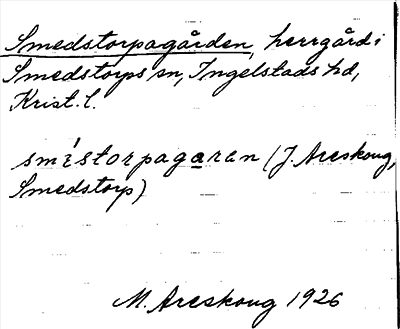 Smedstorpagården, herrgård i
Smedstorps sn, Ingelstads hd,
Krist. l.
smístorpagaran (J. Areskoug,
Smedstorp)
M. Areskoug 1926